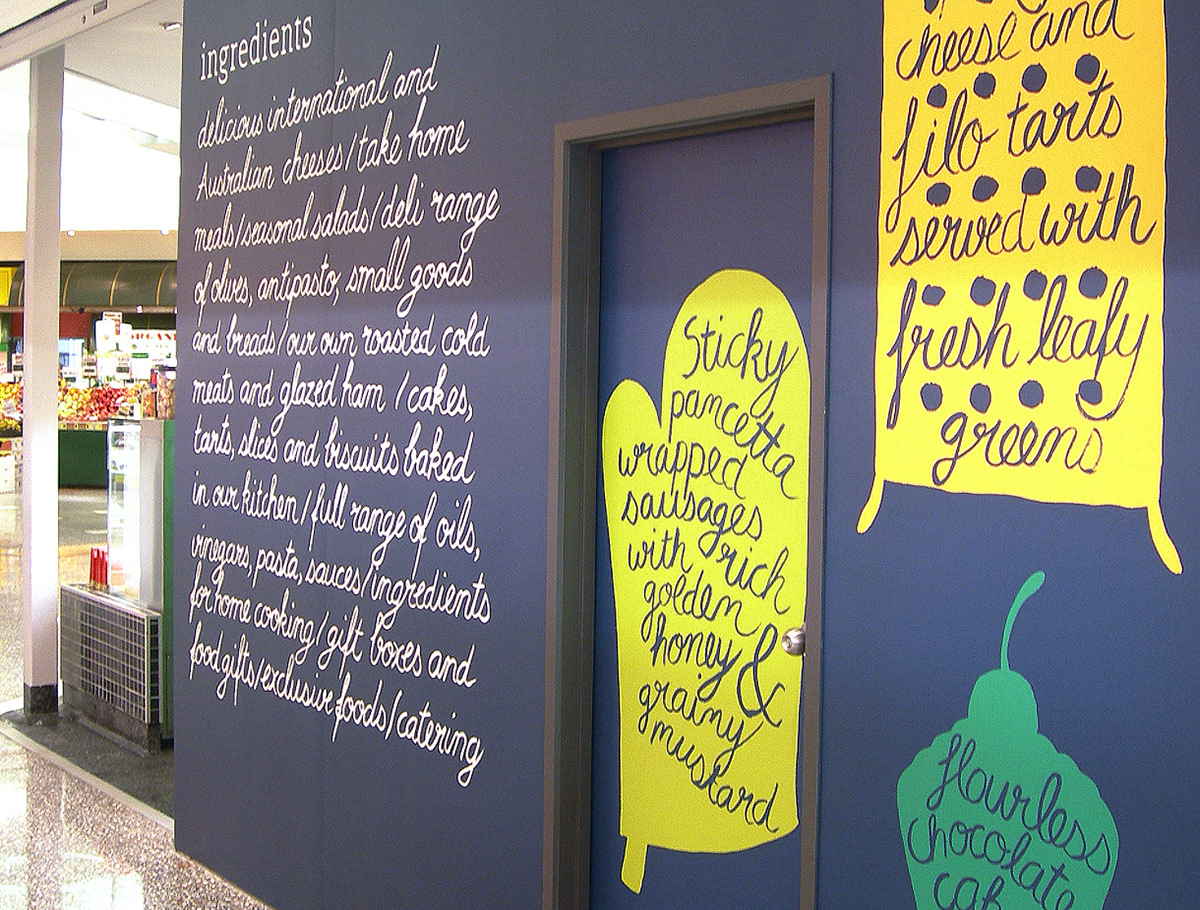 ingredients
delicious international and
Australian cheeses/take home
meals/seasonal salads/deli range
of olives, antipasto, small goods
and breads/our own roasted cold
meats and glazed ham /cakes,
tarts, slices and biscuits baked
in our kitchen/full range of oils,
vinegars, pasta, sauces/ingredients
for home cooking/gift boxes and
food gifts/exclusive foods/catering
Sticky
pancetta
wrapped
sausages
with rich
golden
honey &
grainy
mustard
cheese and
filo tarts
served with
fresh leafy
greens
flourless
chocolate